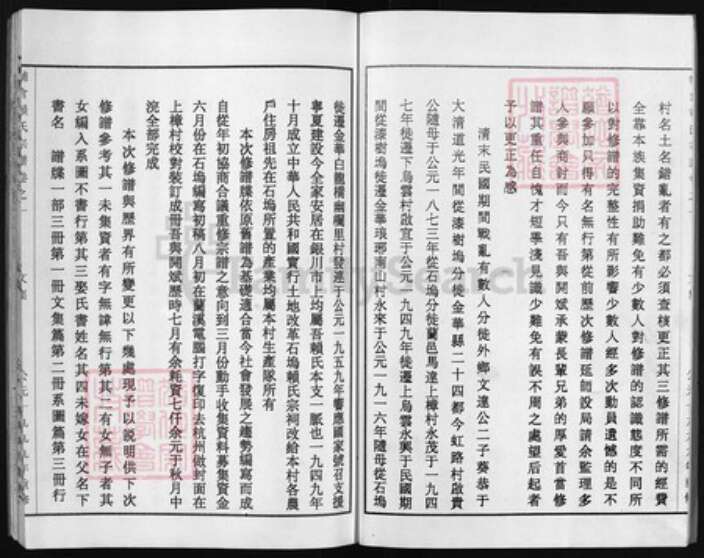 村名土名錯亂者有之都必須查核更正其三修譜所需的經費
全靠本族集資捐助難免有少數人對修譜的認識態度不同所
以對修譜的完整性有所影響少數人經多次動員遺憾的是不
願參加只得有名無行第從前歷次修譜延師設局請余監理多
人參與商討而今只有吾與開斌承蒙長輩兄弟的厚愛首當修
譜其重任自愧才短學淺見識少難免有誤不周之處望后起者
予以更正為感
清末民國期間戰亂有數人分徙外鄉文達公二子葵恭于
大清道光年間從漆樹塢分徙金華縣二十四都今虹路村啟貴
公隨母于公元一八七三年從石塢分徙蘭邑馬達上樟村永茂于一九四
七年徙遷下鳥雲村啟宜于公元一九四九年徙遷上鳥雲永興于民國期
間從漆樹塢徙遷金華琅琊南山村永來于公元一九一六年隨母從石塢
徙遷金華白龍橋幽欄里村發連于公元一九五九年響應國家號召支援
寧夏建設今全家安居在銀川市上均屬吾賴氏本支一脈也一九四九年
十月成立中華人民共和國實行土地改革石塢賴氏宗祠改給本村各農
戶住房祖先在石塢所置的產業均屬本村生產隊所有
本次修譜牒依原舊譜為基礎適合當今社會發展之趨勢編寫而成
自從年初協商合議重修宗譜之意向到三月份動手收集資料募集資金
六月份在石塢編寫初稿八月初在蘭溪電腦打字復印去杭州做封面在
上樟村校對裝訂成冊吾與開斌歷時七月有余耗資七仟余元于秋月中
浣全部完成
本次修譜與歷界有所變更以下幾處現予以説明供下次
修譜參考其一未集資者有字無諱無行第其二有女無子者其
女編入系圖不書行第其三娶氏書姓名其四未嫁女在父名下
書名 譜牒一部三冊第一冊文集篇第二冊系圖篇第三冊行
FamilySearch